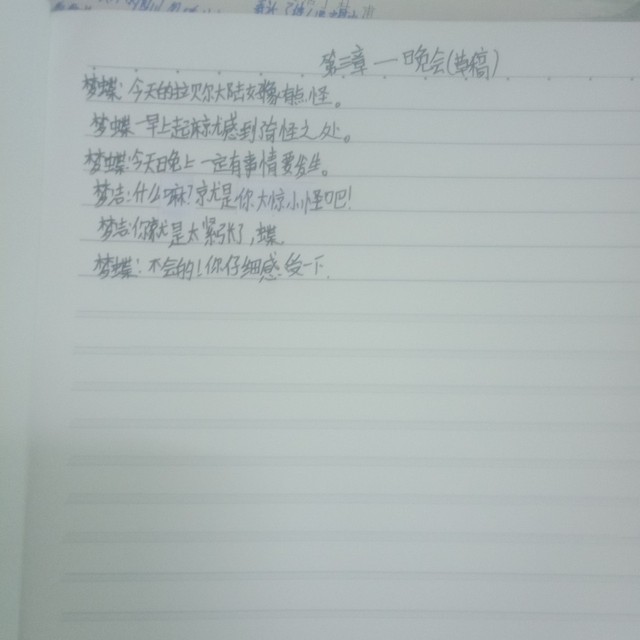 第三章 一 晚会(草稿)
梦蝶:今天的拉贝尔大陆好像有点怪。
梦蝶:早上起床就感到奇怪之处。
梦蝶:今天晚上一定有事情要发生。
梦吉:什么嘛?就是你大惊小怪吧!
梦吉:你就是太紧张了,蝶。
梦蝶:不会的!你仔细感受一下.